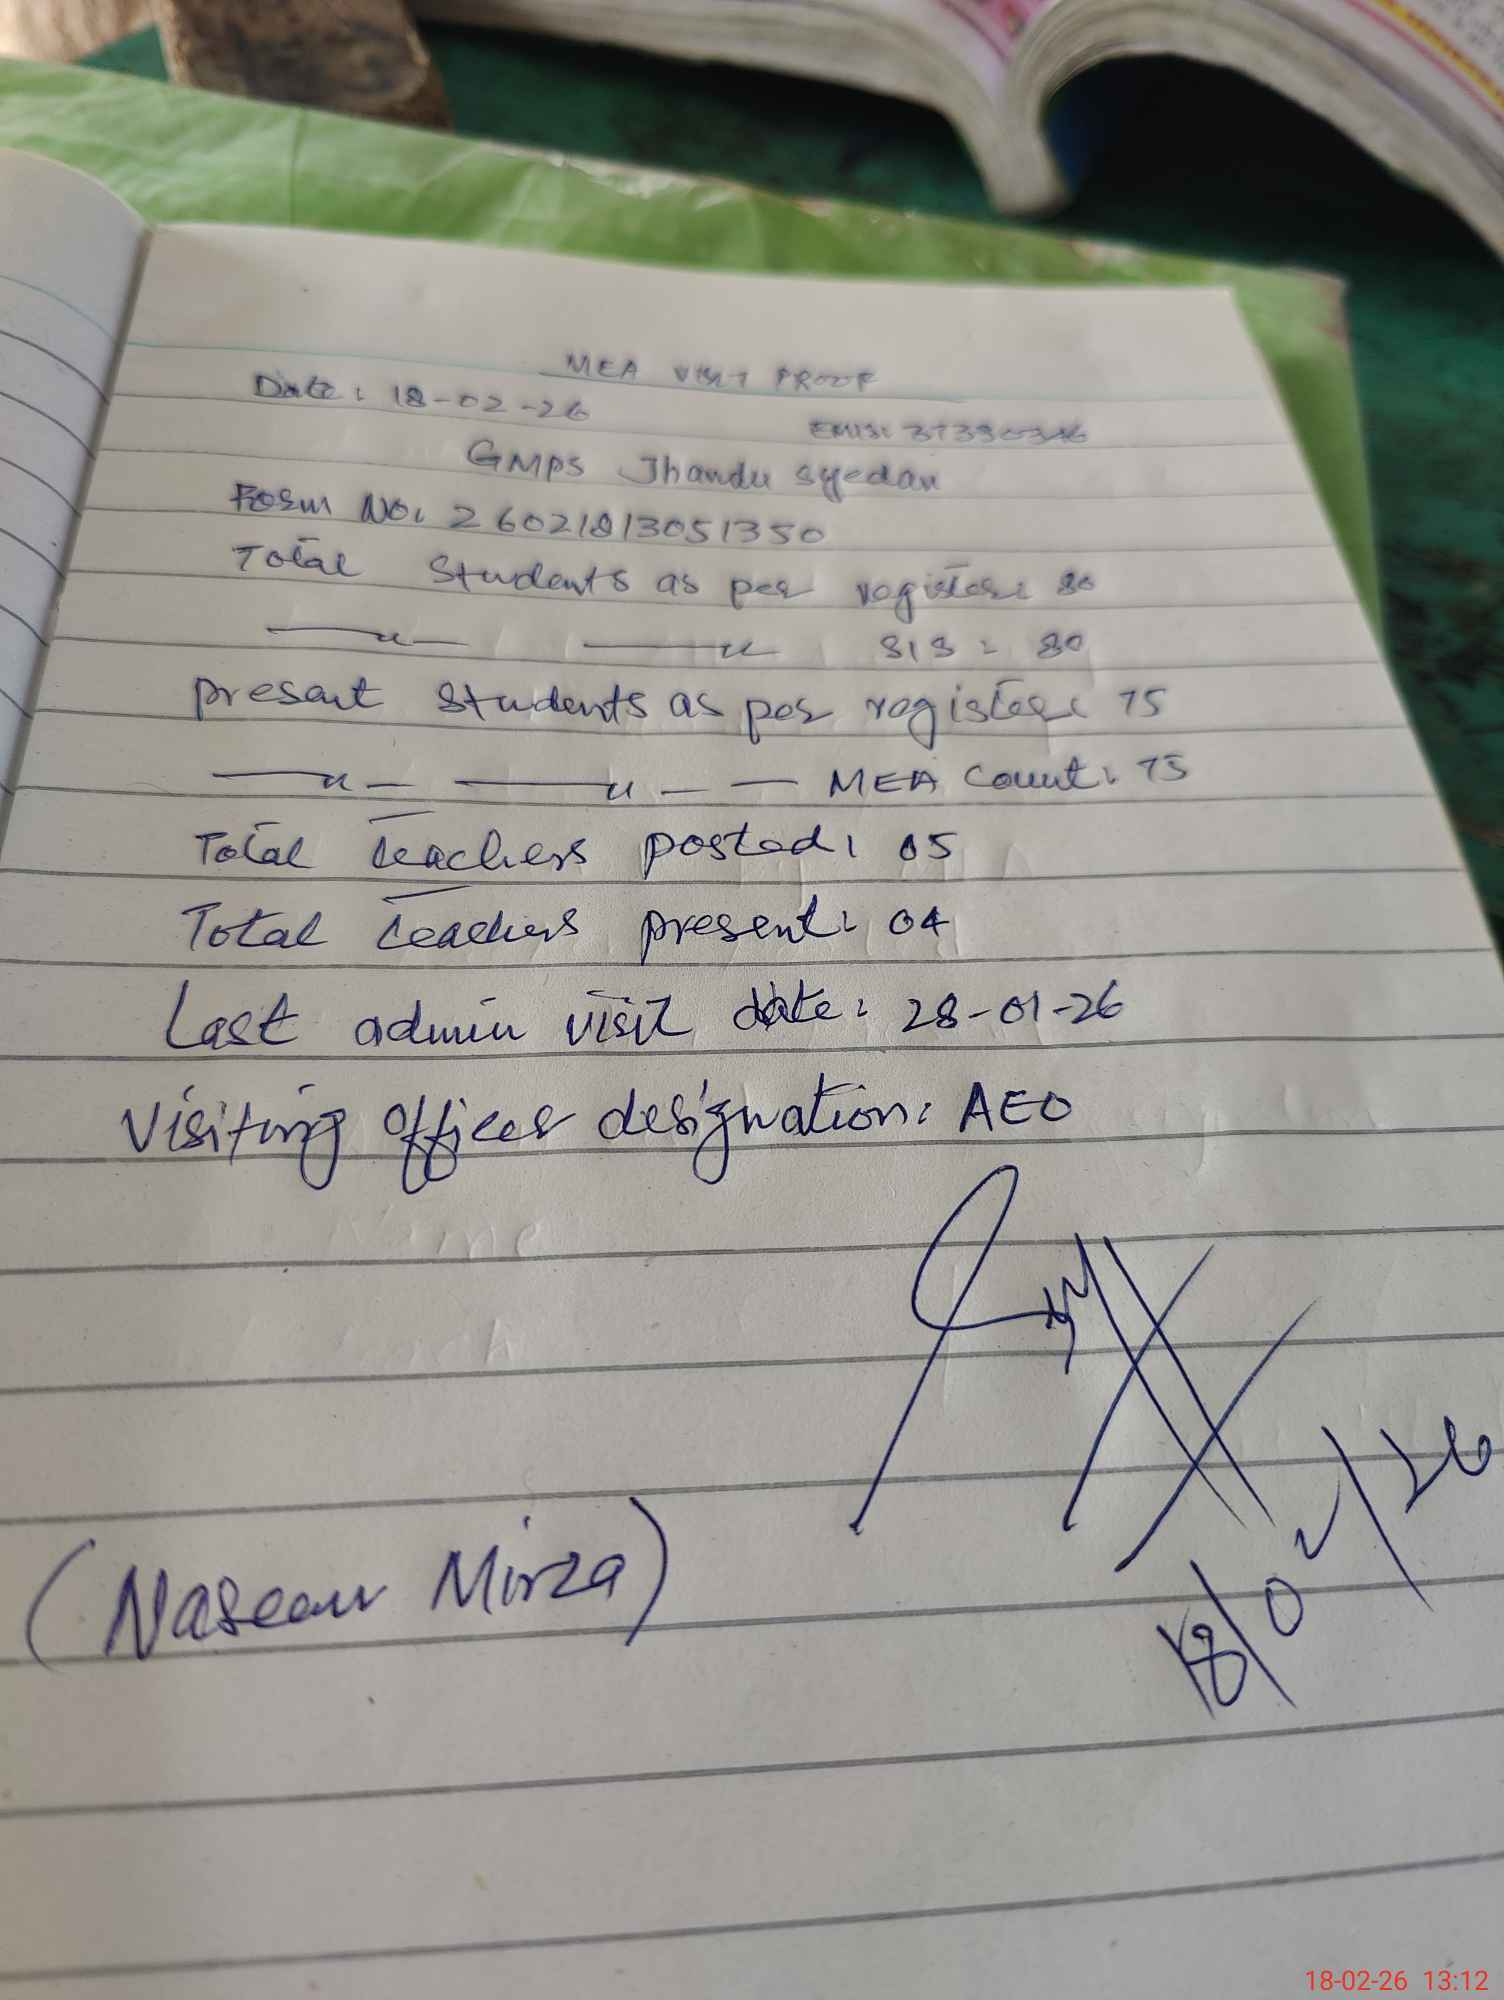 MEA VISIT PROOF
Date: 18-02-26
EMIS: 37330346
GMPS Jhandu Syedan
Form No: 26021813051350
Total Students as per register: 80
—"— —" SIS: 80
present students as per register: 75
—"— —"— — MEA Count: 75
Total teachers posted: 05
Total teachers present: 04
Last admin visit date: 28-01-26
Visiting officer designation: AEO
18/02/26
(Naseem Mirza)
18-02-26 13:12